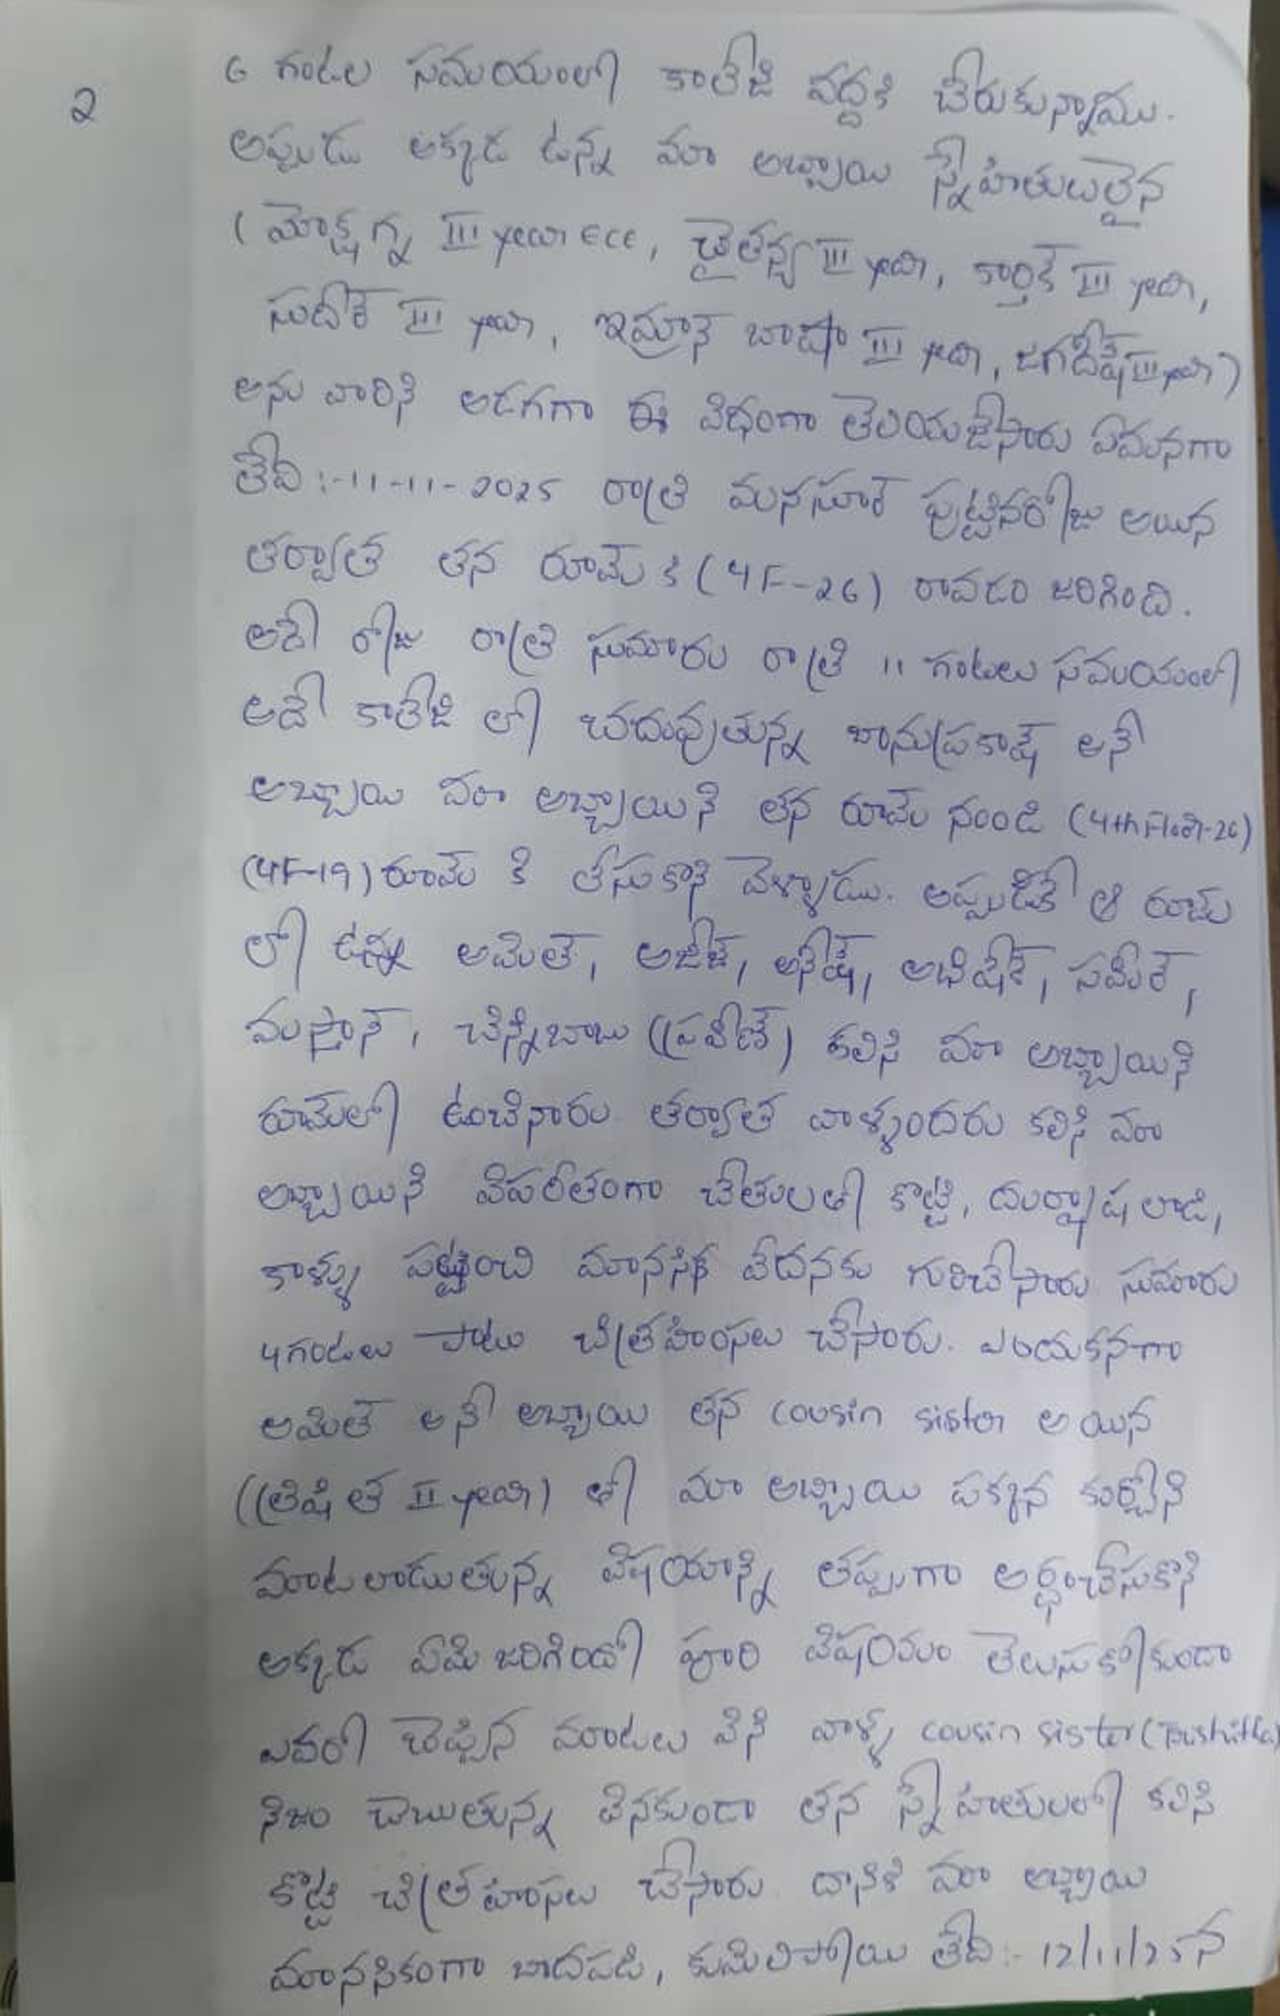 2
6 గంటల సమయంలో కాలేజి వద్దకి చేరుకున్నాము.
అప్పుడు అక్కడ ఉన్న మా అబ్బాయి స్నేహితులులైన
(మోక్షగ్న III year ECE, చైతన్య III year, కార్తిక్ III year,
సుదీర్ III year, ఇమ్రాన్ బాషా III year, జగదీష్ III year)
అను వారిని అడగగా ఈ విధంగా తెలియజేసారు ఏమనగా
తేది:-11-11-2025 రాత్రి మనసూర్ పుట్టినరోజు అయిన
తర్వాత తన రూమ్ కి (4F-26) రావడం జరిగింది.
అదే రోజు రాత్రి సుమారు రాత్రి 11 గంటలు సమయంలో
అదే కాలేజి లో చదువుతున్న భానుప్రకాష్ అనే
అబ్బాయి మా అబ్బాయిని తన రూమ్ నుండి (4th Floor-26)
(4F-19) రూమ్ కి తీసుకొని వెళ్ళాడు. అప్పుడికే ఆ రూమ్
లో ఉన్న అమిత్, అజీజ్, అనీష్, అభిషేక్, సమీర్,
మస్తాన్, చిన్నిబాబు (ప్రవీణ్) కలిసి మా అబ్బాయిని
రూమ్‌లో ఉంచినారు తర్వాత వాళ్ళందరు కలిసి మా
అబ్బాయిని విపరీతంగా చేతులతో కొట్టి, దుర్భాషలాడి,
కాళ్ళు పట్టించి మానసిక వేదనకు గురిచేసారు సుమారు
4గంటలు పాటు చిత్రహింసలు చేసారు. ఎందుకనగా
అమిత్ అనే అబ్బాయి తన cousin sister అయిన
((త్రిషిత II year) తో మా అబ్బాయి పక్కన కుర్చోని
మాటలాడుతున్న విషయాన్ని తప్పుగా అర్థంచేసుకొని
అక్కడ ఏమి జరిగిందో పూరి విషయం తెలుసుకోకుండా
ఎవరో చెప్పిన మాటలు విని వాళ్ళ cousin sister (Trishitha)
నిజం చెబుతున్న వినకుండా తన స్నేహితులలో కలిసి
కొట్టి చిత్రహింసలు చేసారు దానికి మా అబ్బాయి
మానసికంగా బాదపడి, కుమిలిపోయి తేది:- 12/11/25న